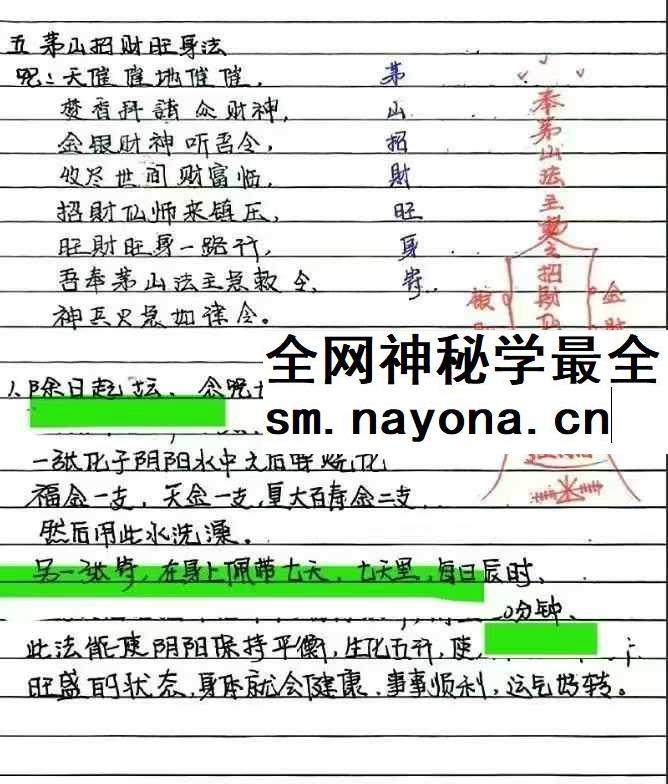 五 茅山招财旺身法
咒:天催催地催催,
焚香拜請众财神,
金银财神听吾令,
收尽世间财富临,
招財仙师来镇压,
旺財旺身一路行,
吾奉茅山法主急敕令,
神兵火急如律令。
茅山招財旺身符
奉茅山法主敕令招財
银
金財
全网神秘学最全
sm.nayona.cn
1、除日起坛、念咒
一张化于阴阳水中之后再烧化
福金一支,天金一支,更大百寿金二支
然后用此水洗澡。
另一张符,在身上佩带七天,七天里,每日辰时、
0分钟、
此法能使阴阳保持平衡,生化五行,使
旺盛的状态,身体就会健康,事事顺利,运气好转。